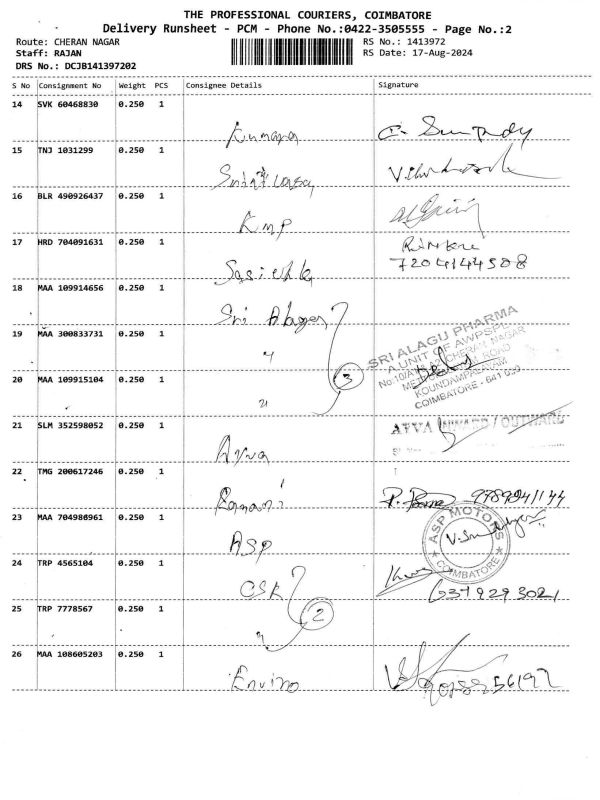 THE PROFESSIONAL COURIERS, COIMBATORE
Delivery Runsheet - PCM - Phone No.:0422-3505555 - Page No.:2
Route: CHERAN NAGAR RS No.: 1413972
Staff: RAJAN RS Date: 17-Aug-2024
DRS No.: DCJB141397202
S No Consignment No Weight PCS Consignee Details Signature
14 SVK 60468830 0.250 1
Kumara
15 TNJ 1031299 0.250 1
16 BLR 490926437 0.250 1
KMP
17 HRD 704091631 0.250 1
7204144508
18 MAA 109914656 0.250 1
Sri Alagen
19 MAA 300833731 0.250 1
〃
SRI ALAGU PHARMA
A UNIT OF AWPSPL
CHERAN NAGAR
ROAD
KOUNDAMPALAYAM
COIMBATORE - 641 030
3
20 MAA 109915104 0.250 1
〃
21 SLM 352598052 0.250 1
Avva
AVVA INWARD / OUTWARD
22 TMG 200617246 0.250 1
Ramani
9789241144
23 MAA 704986961 0.250 1
ASP
ASP MOTORS
COIMBATORE
24 TRP 4565104 0.250 1
CSK
2
25 TRP 7778567 0.250 1
〃
26 MAA 108605203 0.250 1
Enviro